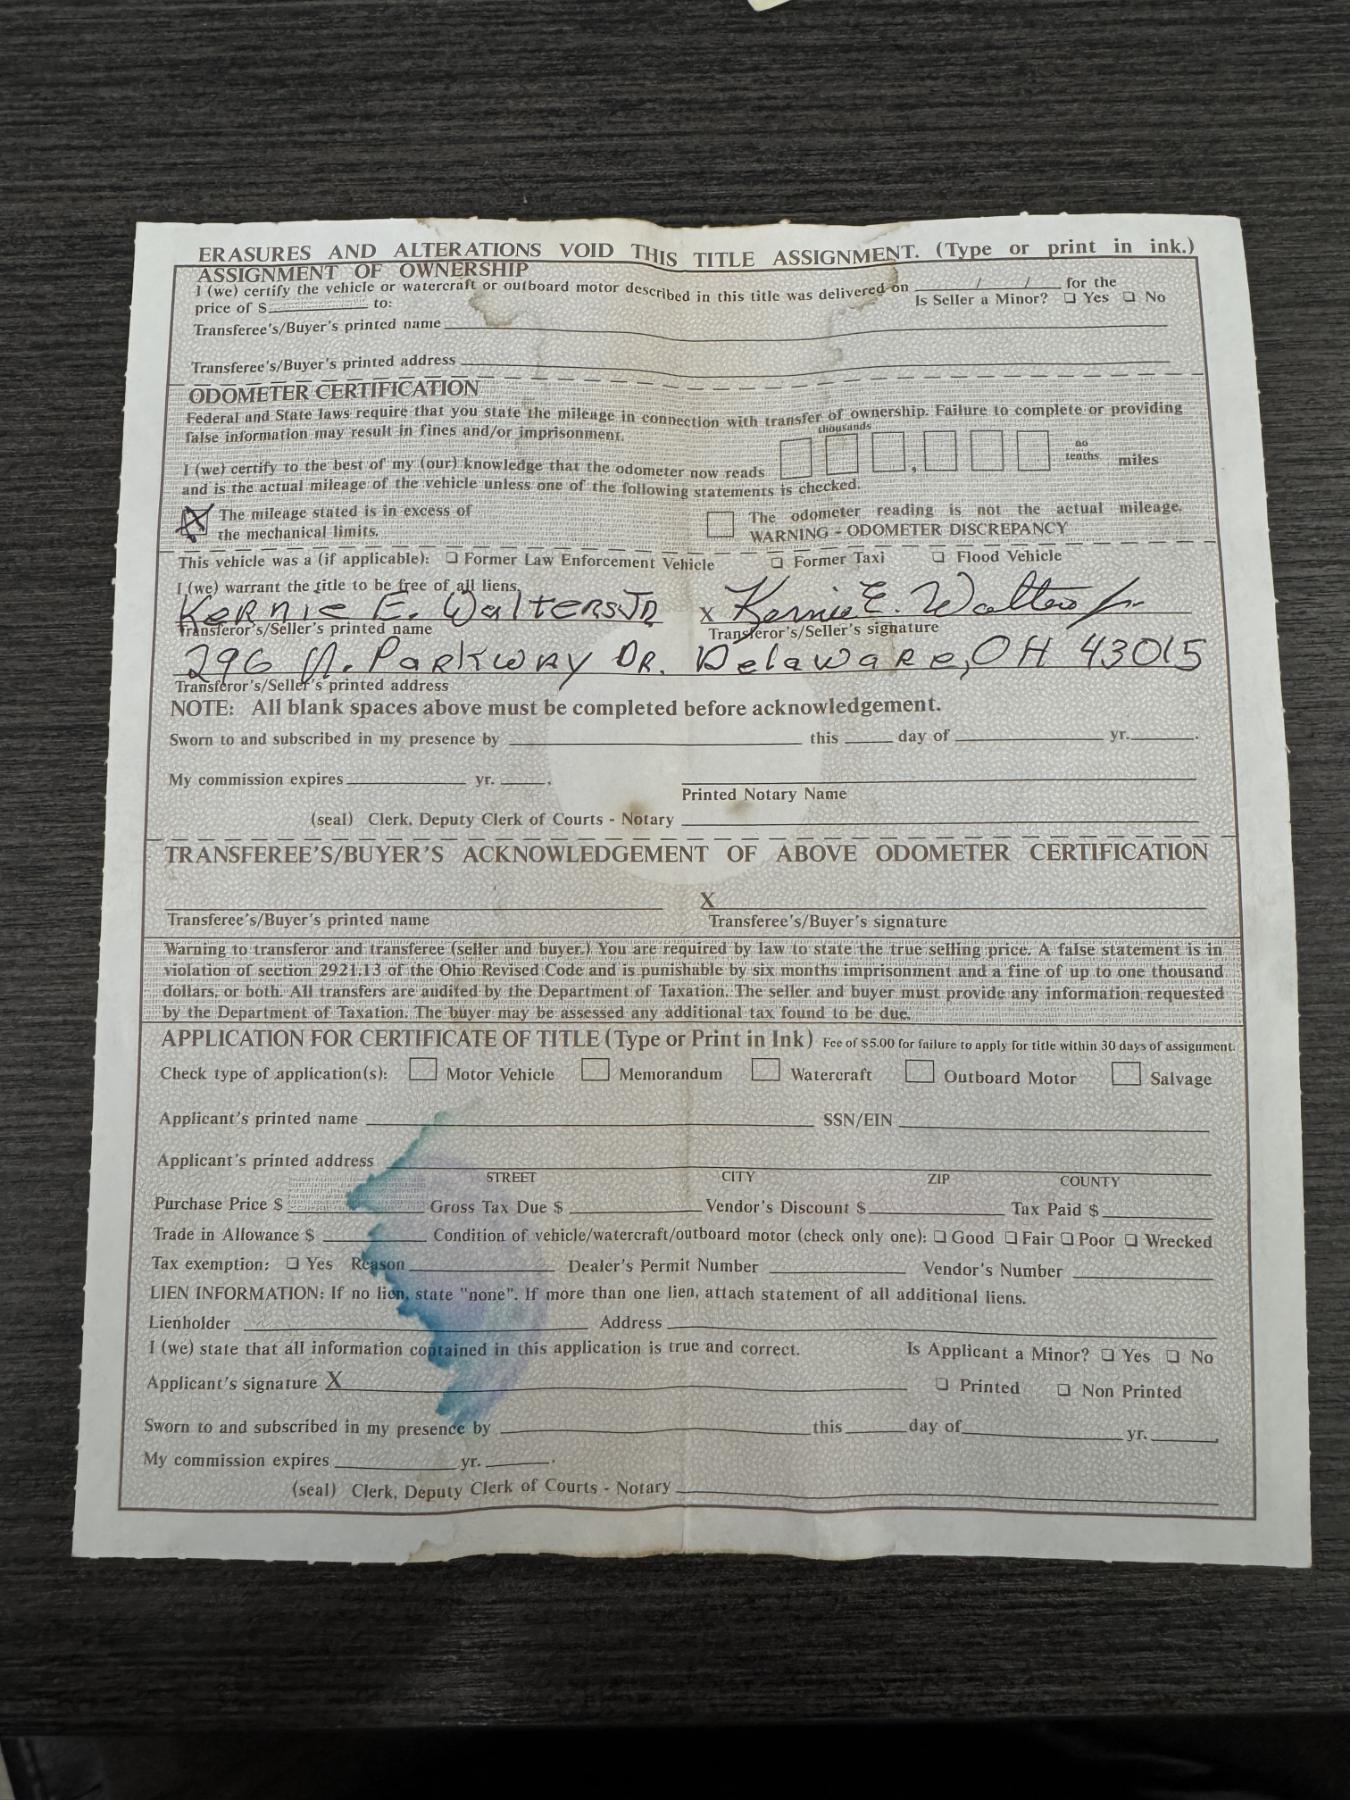 ERASURES AND ALTERATIONS VOID THIS TITLE ASSIGNMENT. (Type or print in ink.)
ASSIGNMENT OF OWNERSHIP
I (we) certify the vehicle or watercraft or outboard motor described in this title was delivered on ____/____/____ for the
price of $__________ to: Is Seller a Minor? ☐ Yes ☐ No
Transferee's/Buyer's printed name
Transferee's/Buyer's printed address
ODOMETER CERTIFICATION
Federal and State laws require that you state the mileage in connection with transfer of ownership. Failure to complete or providing
false information may result in fines and/or imprisonment.
thousands
I (we) certify to the best of my (our) knowledge that the odometer now reads ☐☐☐,☐☐☐ no tenths miles
and is the actual mileage of the vehicle unless one of the following statements is checked.
☒ The mileage stated is in excess of ☐ The odometer reading is not the actual mileage.
the mechanical limits. WARNING - ODOMETER DISCREPANCY
This vehicle was a (if applicable): ☐ Former Law Enforcement Vehicle ☐ Former Taxi ☐ Flood Vehicle
I (we) warrant the title to be free of all liens.
Kernie E. Walters Jr X Kernie E. Walters Jr
Transferor's/Seller's printed name Transferor's/Seller's signature
296 N. Parkway Dr. Delaware, OH 43015
Transferor's/Seller's printed address
NOTE: All blank spaces above must be completed before acknowledgement.
Sworn to and subscribed in my presence by ____ this ____ day of ____ yr.____.
My commission expires ____ yr. ____.
Printed Notary Name
(seal) Clerk, Deputy Clerk of Courts - Notary
TRANSFEREE'S/BUYER'S ACKNOWLEDGEMENT OF ABOVE ODOMETER CERTIFICATION
X
Transferee's/Buyer's printed name Transferee's/Buyer's signature
Warning to transferor and transferee (seller and buyer.) You are required by law to state the true selling price. A false statement is in
violation of section 2921.13 of the Ohio Revised Code and is punishable by six months imprisonment and a fine of up to one thousand
dollars, or both. All transfers are audited by the Department of Taxation. The seller and buyer must provide any information requested
by the Department of Taxation. The buyer may be assessed any additional tax found to be due.
APPLICATION FOR CERTIFICATE OF TITLE (Type or Print in Ink) Fee of $5.00 for failure to apply for title within 30 days of assignment.
Check type of application(s): ☐ Motor Vehicle ☐ Memorandum ☐ Watercraft ☐ Outboard Motor ☐ Salvage
Applicant's printed name ____ SSN/EIN ____
Applicant's printed address
STREET CITY ZIP COUNTY
Purchase Price $ ____ Gross Tax Due $ ____ Vendor's Discount $ ____ Tax Paid $ ____
Trade in Allowance $ ____ Condition of vehicle/watercraft/outboard motor (check only one): ☐ Good ☐ Fair ☐ Poor ☐ Wrecked
Tax exemption: ☐ Yes Reason ____ Dealer's Permit Number ____ Vendor's Number ____
LIEN INFORMATION: If no lien, state "none". If more than one lien, attach statement of all additional liens.
Lienholder ____ Address ____
I (we) state that all information contained in this application is true and correct. Is Applicant a Minor? ☐ Yes ☐ No
Applicant's signature X ____ ☐ Printed ☐ Non Printed
Sworn to and subscribed in my presence by ____ this ____ day of ____ yr. ____.
My commission expires ____ yr. ____.
(seal) Clerk, Deputy Clerk of Courts - Notary